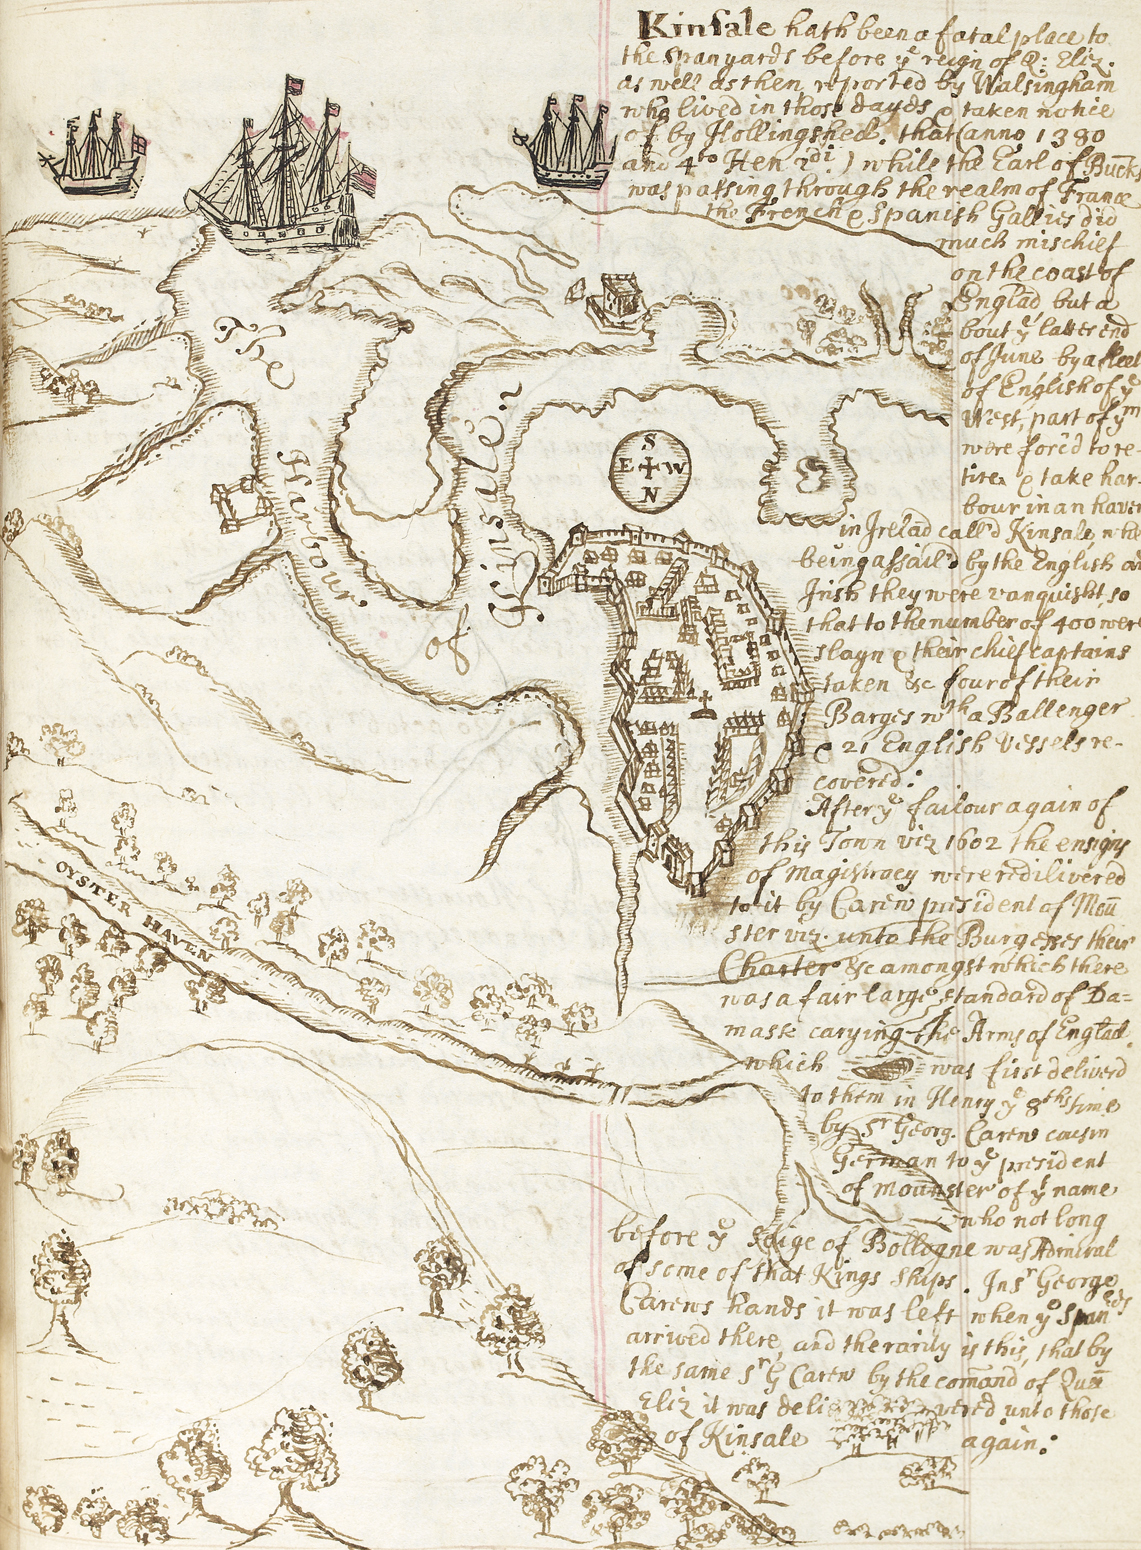 Kinsale hath been a fatal place to
the Spanyards before yͤ reign of Q: Eliz.
as well as then reported by Walsingham
who lived in those dayds & taken notice
of by Hollingshed. that (anno 1380
and 4to Hen 2di) while the Earl of Bucks
was passing through the realm of France
the French & Spanish Gallies did
much mischief
on the coast of
Englad, but a
bout yͤ latter end
of June by a fleet
of English of yͤ
West, part of yͫ
were forc'd to re-
tire & take har-
bour in an haven
in Irelad call'd Kinsale whe
being assail'd by the English an
Irish they were vanquisht so
that to the number of 400 were
slayn & their chief captains
taken &c four of their
Barges wth a Ballenger
& 21 English Vessels re-
covered:
After yͤ failour again of
this Town viz 1602 the ensigns
of magistracy were redilivered
to it by Carew president of Moū
ster viz. unto the Burgesses their
Charter &c amongst which there
was a fair large standard of Da=
mask carying the Arms of Englad.
which was first deliverd
to them in Henry yͤ 8ths time
by Sr Georg. Carew cousin
German to yͤ president
of mounster of yͤ name
who not long
before yͤ Seige of Bollogne was Admiral
of some of that Kings Ships. In sr George
Carews hands it was left when yͤ Spanrds
arrived there, and the rarity is this, that by
the same Sr G Carew by the comand of Quēē
Eliz it was deli vered unto those
of Kinsale again:
The
Harbour
of
Kinsale.
S
E W
N
OYSTER HAVEN